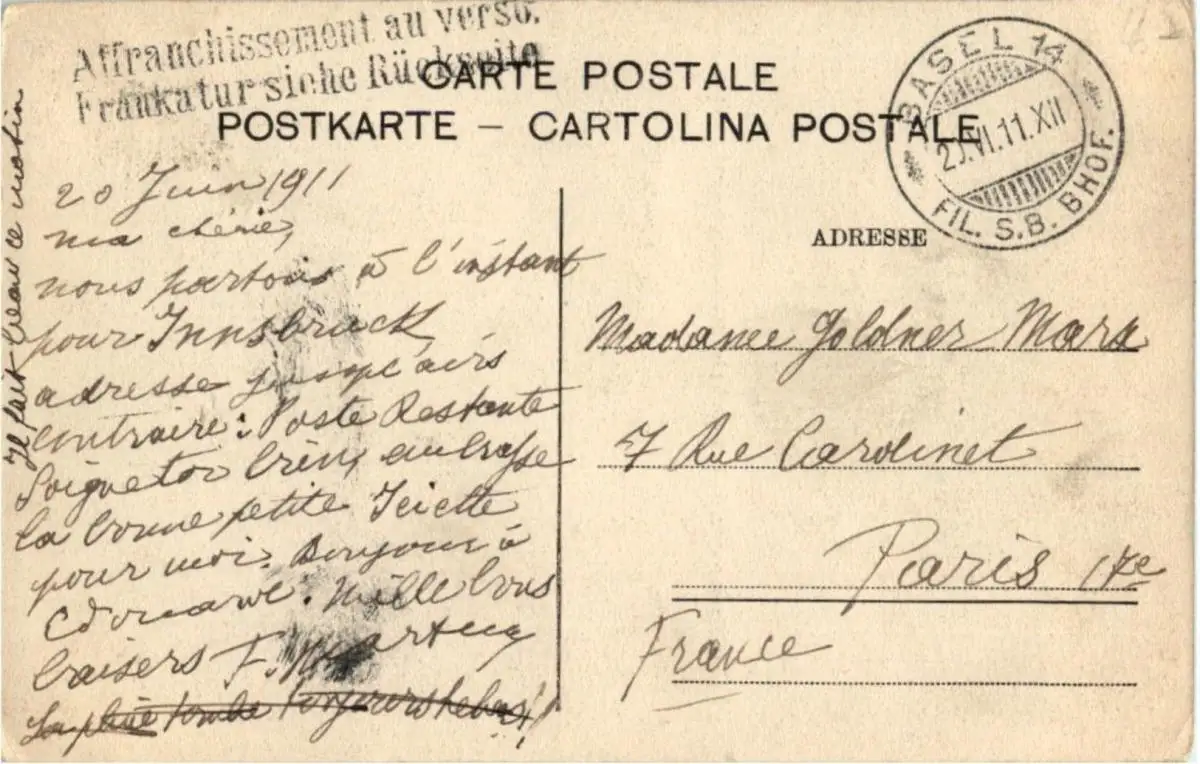 Affranchissement au verso.
Frankatur siehe Rückseite
CARTE POSTALE
POSTKARTE – CARTOLINA POSTALE
BASEL 14
VI.11.XII
FIL. S.B. BHOF.
Il fait beau ce matin
20 Juin 1911
ma chérie,
nous partons à l'instant
pour Innsbruck,
adresse jusqu'avis
contraire: Poste Restante
Soigne toi bien, embrasse
la bonne petite
pour moi. Bonjour à
Edouard. Mille bons
baisers F.
La pluie tombe toujours
ADRESSE
Madame Goldner Marx
7 Rue Cardinet
Paris 17e
France